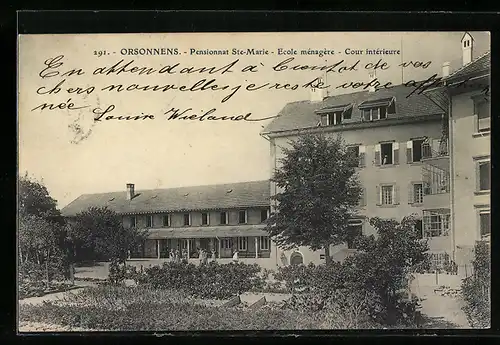 291. - ORSONNENS. - Pensionnat Ste-Marie - Ecole ménagère - Cour intérieure
En attendant à bientôt de vos
chers nouvelles, je reste votre affection
née Louise Wieland